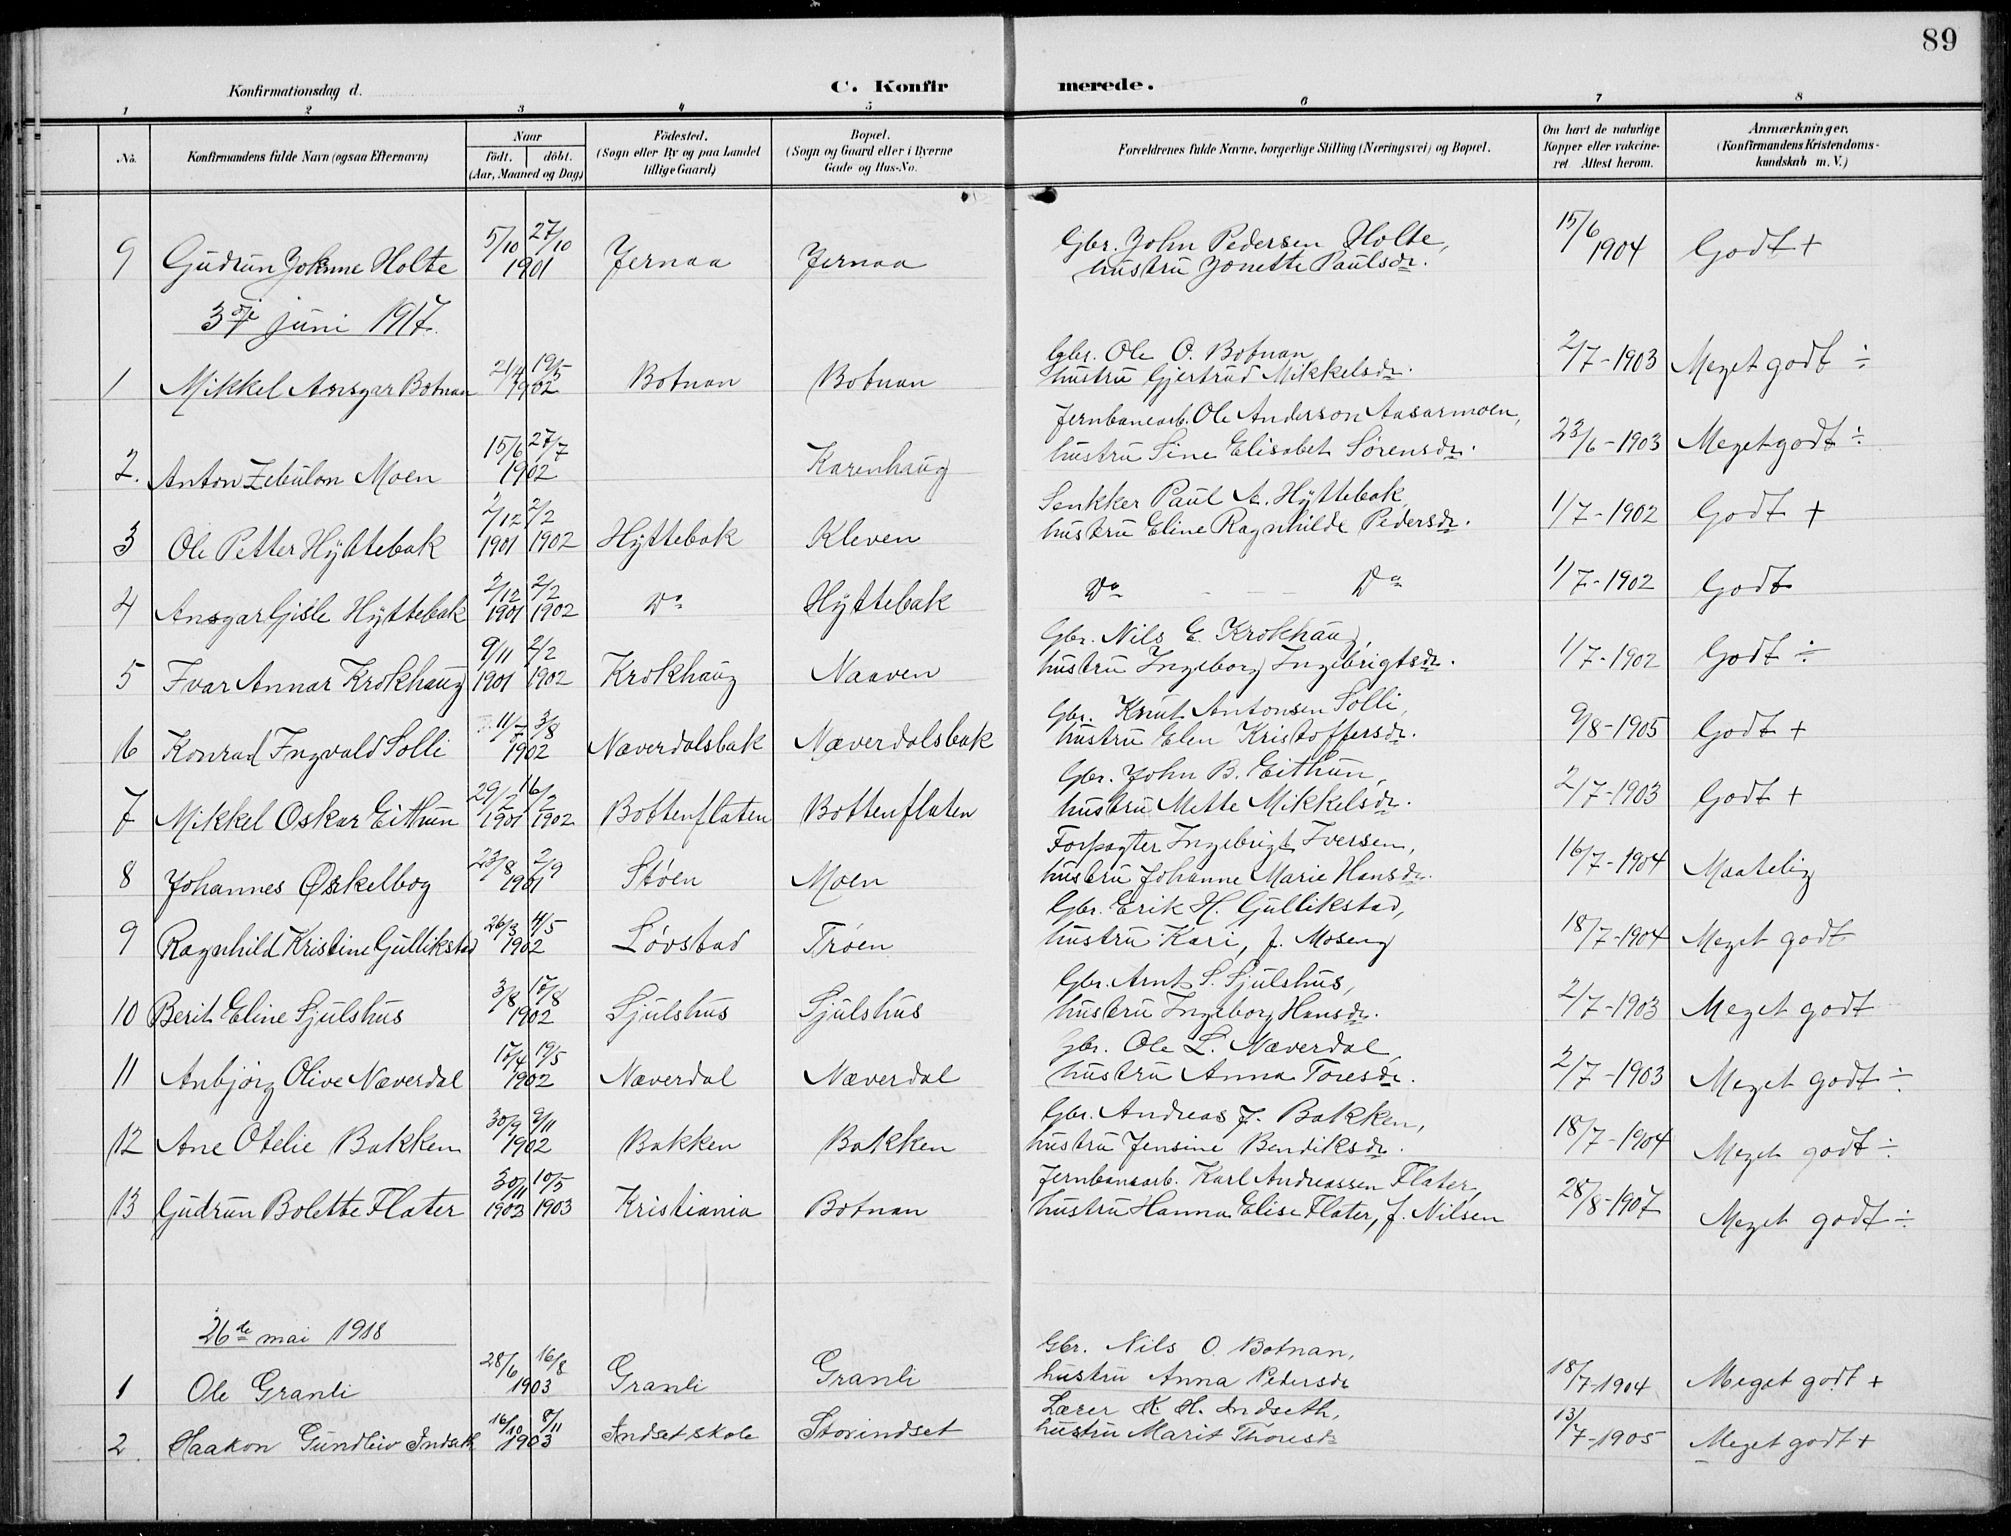 89
Konfirmationsdag d. C. Konfir merede.
1 2 3 4 5 6 7 8
No. Konfirmandens fulde Navn (ogsaa Efternavn) Naar født. döbt. (Aar, Maaned og Dag) Födested. (Sogn eller By og paa Landet tillige Gaard) Bopæl. (Sogn og Gaard eller i Byerne Gade og Hus-No. Forældrenes fulde Navne, borgerlige Stilling (Næringsvei) og Bopæl. Om havt de naturlige Kopper eller vakcineret Attest herom. Anmærkninger. (Konfirmandens Kristendomskundskab m. V.)
Gbr. John Pedersen Holte,
9 Gudrun Johnne Holte 5/10 27/10 1901 Jernaa Jernaa hustru Jonette Paulsdr. 15/6 1904 Godt +
3die juni 1917.
Gbr. Ole O. Botnan
1 Mikkel Ansgar Botnan 21/4 19/5 1902 Botnan Botnan hustru Gjertrud Mikkelsdr. 2/7-1903 Meget godt ÷
Jernbanearb. Ole Anderson Aasarmoen,
2. Anton Zebulon Moen 15/6 27/7 1902 Karenhaug hustru Sine Elisabet Sørensdr. 23/6-1903 Meget godt ÷
Senkker Paul A. Hyttebak
3 Ole Petter Hyttebak 2/12 1901 2/2 1902 Hyttebak Kleven hustru Eline Ragnhilde Pedersdr. 1/7-1902 Godt +
4 Ansgar Gisle Hyttebak 2/12 1901 2/2 1902 Do Hyttebak Do - - - Do 1/7-1902 Godt
Gbr. Nils E. Krokhaug,
5 Ivar Annar Krokhaug 9/11 1901 2/2 1902 Krokhaug Naaven hustru Ingeborg Ingebrigtsdr. 1/7-1902 Godt ÷
Gbr. Knut Antonsen Solli,
6 Konrad Ingvald Solli 11/7 3/8 1902 Næverdalsbak Næverdalsbak hustru Elen Kristoffersdr. 9/8-1905 Godt +
Gbr. John B. Eithun,
7 Mikkel Oskar Eithun 1901 1902 Bottenflaten Bottenflaten hustru Mette Mikkelsdr. 2/7-1903 Godt +
Forpagter Ingebrigt Iversen,
8 Johannes Øskelbog 23/8 2/9 1901 Støen Moen hustru Johanne Marie Hansdr. 16/7-1904 Maatelig
Gbr. Erik H. Gullikstad,
9 Ragnhild Kristine Gullikstad 26/3 4/5 1902 Løvstad Trøen hustru Kari, f. Moseng 18/7-1904 Meget godt
Gbr. Arnt S. Sjulshus,
10 Berit Eline Sjulshus 3/8 17/8 1902 Sjulshus Sjulshus hustru Ingeborg Hansdr. 2/7-1903 Meget godt
Gbr. Ole L. Næverdal,
11 Anbjørg Olive Næverdal 17/4 19/5 1902 Næverdal Næverdal hustru Anna Toresdr. 2/7-1903 Meget godt ÷
Gbr. Andreas J. Bakken,
12 Ane Otelie Bakken 30/9 9/11 1902 Bakken Bakken hustru Jensine Bendiksdr. 18/7-1904 Meget godt ÷
Jernbanearb. Karl Andreassen Flater,
13 Gudrun Bolette Flater 30/11 10/5 1903 Kristiania Botnan hustru Hanna Elise Flater, f. Nilsen 28/8-1907 Meget godt ÷
26de mai 1918
Gbr. Nils O. Botnan,
1 Ole Granli 28/6 16/8 1903 Granli Granli hustru Anna Pedersdr 18/7-1904 Meget godt +
Lærer K. H. Indseth,
2 Haakon Gundleiv Indseth 16/10 8/11 1903 Indset skole Storindset hustru Marit Thoresdr 13/7-1905 Meget godt +